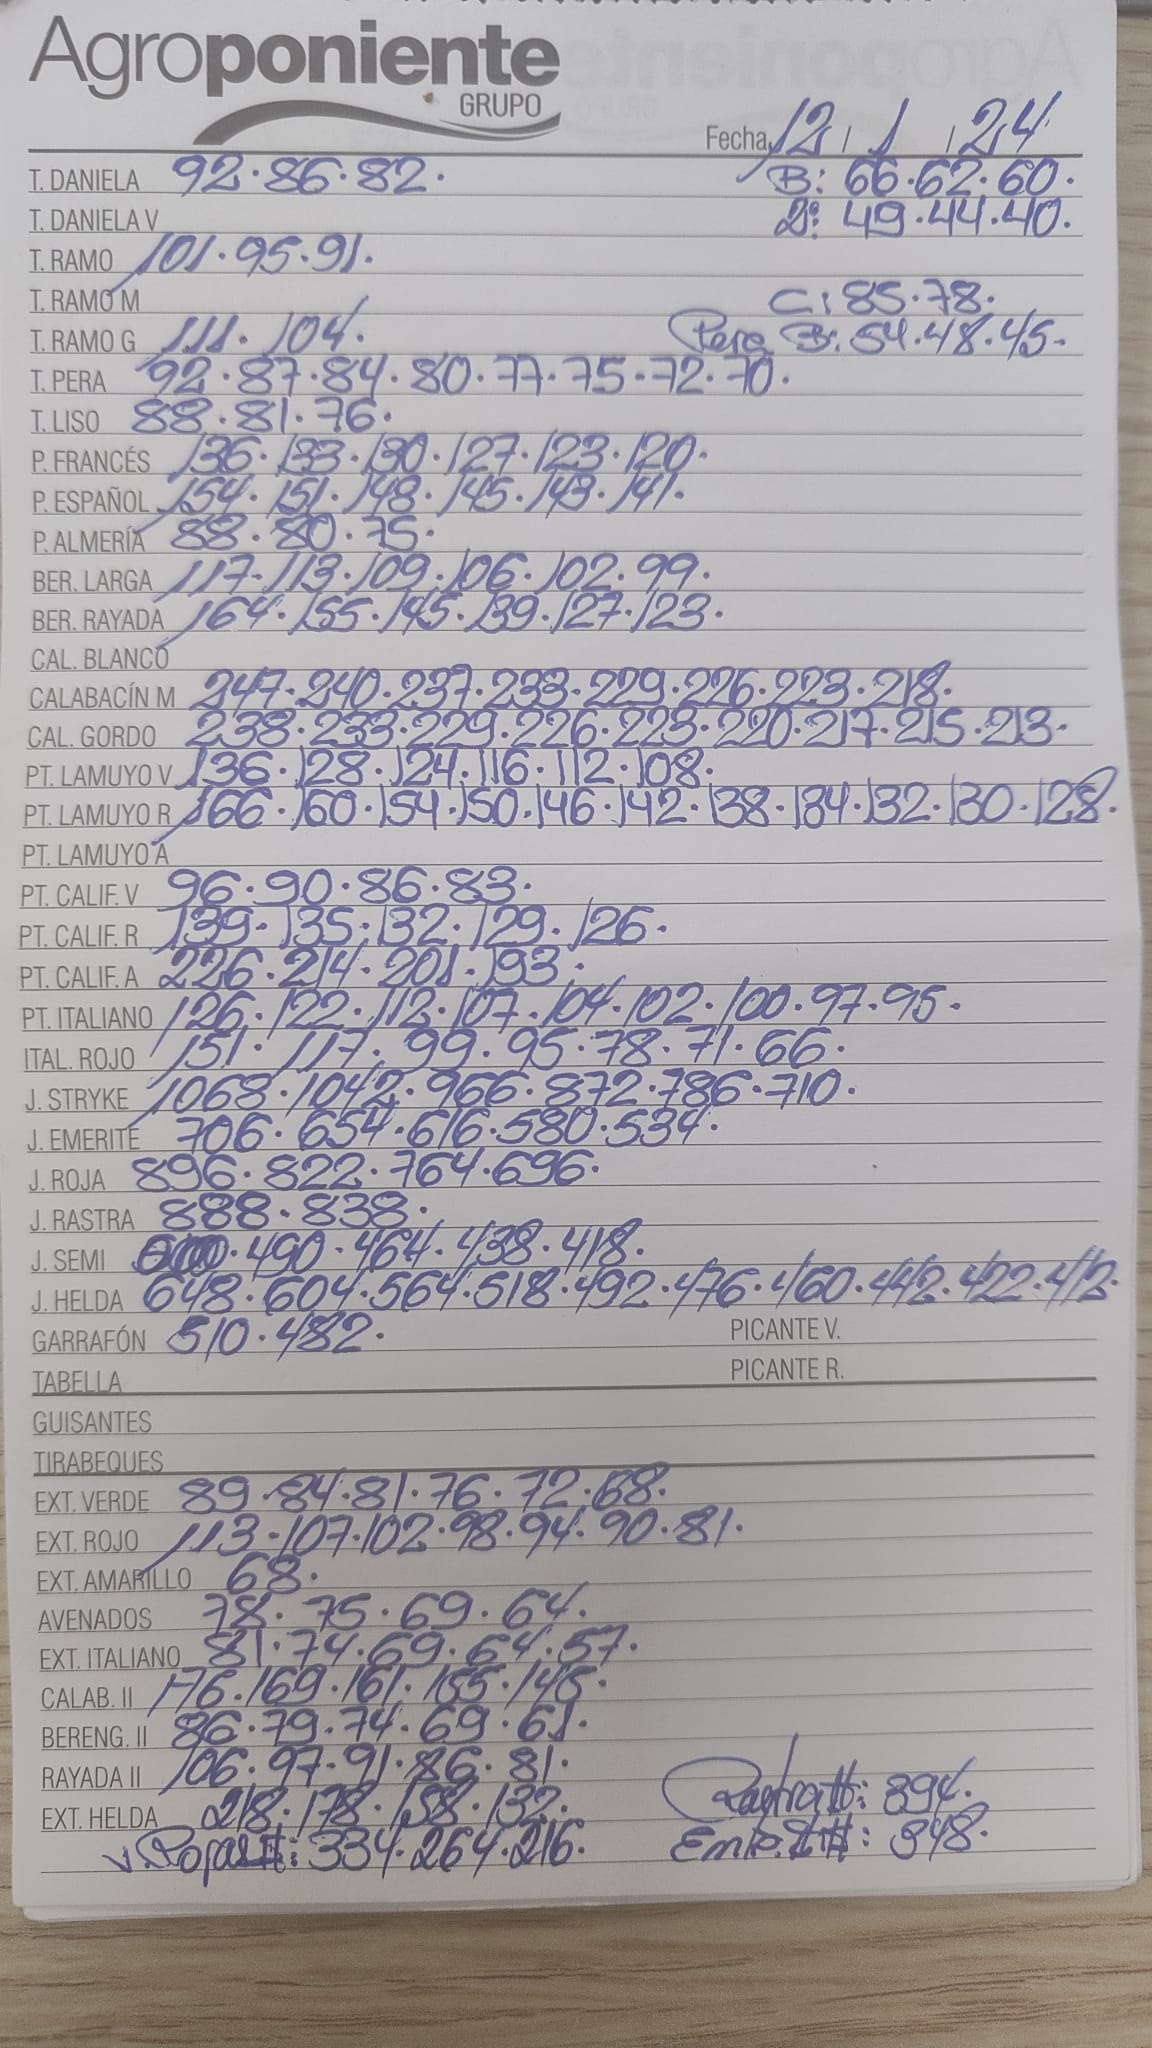 Agroponiente
GRUPO
Fecha 12 / 1 / 24
T. DANIELA 92.86.82. B: 66.62.60.
T. DANIELA V 2ª: 49.44.40.
T. RAMO 101.95.91.
T. RAMO M C: 85.78.
T. RAMO G 111. 104. Pera B: 54.48.45.
T. PERA 92.87.84.80.77.75.72.70.
T. LISO 88.81.76.
P. FRANCÉS 136.133.130.127.123.120.
P. ESPAÑOL 154.151.148.145.143.141.
P. ALMERÍA 88.80.75.
BER. LARGA 117.113.109.106.102.99.
BER. RAYADA 164.155.145.139.127.123.
CAL. BLANCO
CALABACÍN M 247.240.237.233.229.226.223.218.
CAL. GORDO 238.233.229.226.223.220.217.215.213.
PT. LAMUYO V 136.128.124.116.112.108.
PT. LAMUYO R 166.160.154.150.146.142.138.134.132.130.128.
PT. LAMUYO A
PT. CALIF. V 96.90.86.83.
PT. CALIF. R 139.135.132.129.126.
PT. CALIF. A 226.214.201.193.
PT. ITALIANO 126.122.112.107.104.102.100.97.95.
ITAL. ROJO 151.117.99.95.78.71.66.
J. STRYKE 1068.1042.966.872.786.710.
J. EMERITE 706.654.616.580.534.
J. ROJA 896.822.764.696.
J. RASTRA 888.838.
J. SEMI .490.464.438.418.
J. HELDA 648.604.564.518.492.476.460.442.422.412.
GARRAFÓN 510.482. PICANTE V.
TABELLA PICANTE R.
GUISANTES
TIRABEQUES
EXT. VERDE 89.84.81.76.72.68.
EXT. ROJO 113.107.102.98.94.90.81.
EXT. AMARILLO 68.
AVENADOS 78.75.69.64.
EXT. ITALIANO 81.74.69.64.57.
CALAB. II 176.169.161.155.145.
BERENG. II 86.79.74.69.61.
RAYADA II 106.97.91.86.81.
EXT. HELDA 218.178.158.132. Rastra II: 394.
Roja II: 334.264.216. Emte. II: 348.